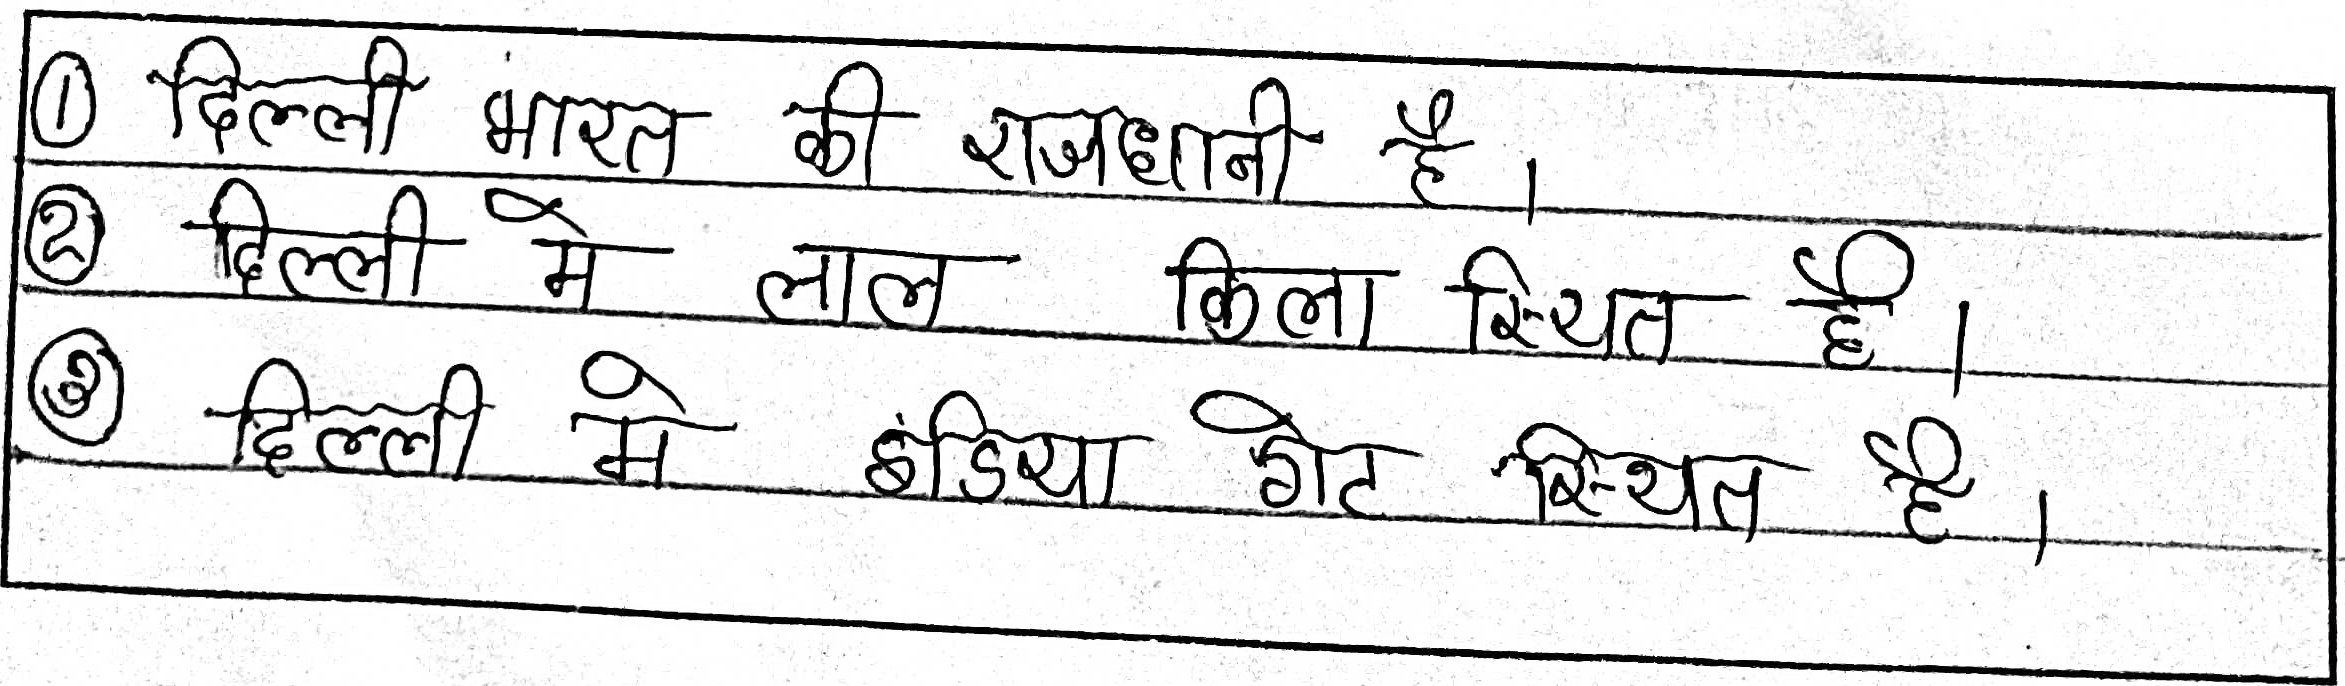 ① दिल्ली भारत की राजधानी है।
② दिल्ली मे लाल किला स्थित है।
③ दिल्ली मे इंडिया गेट स्थित है।